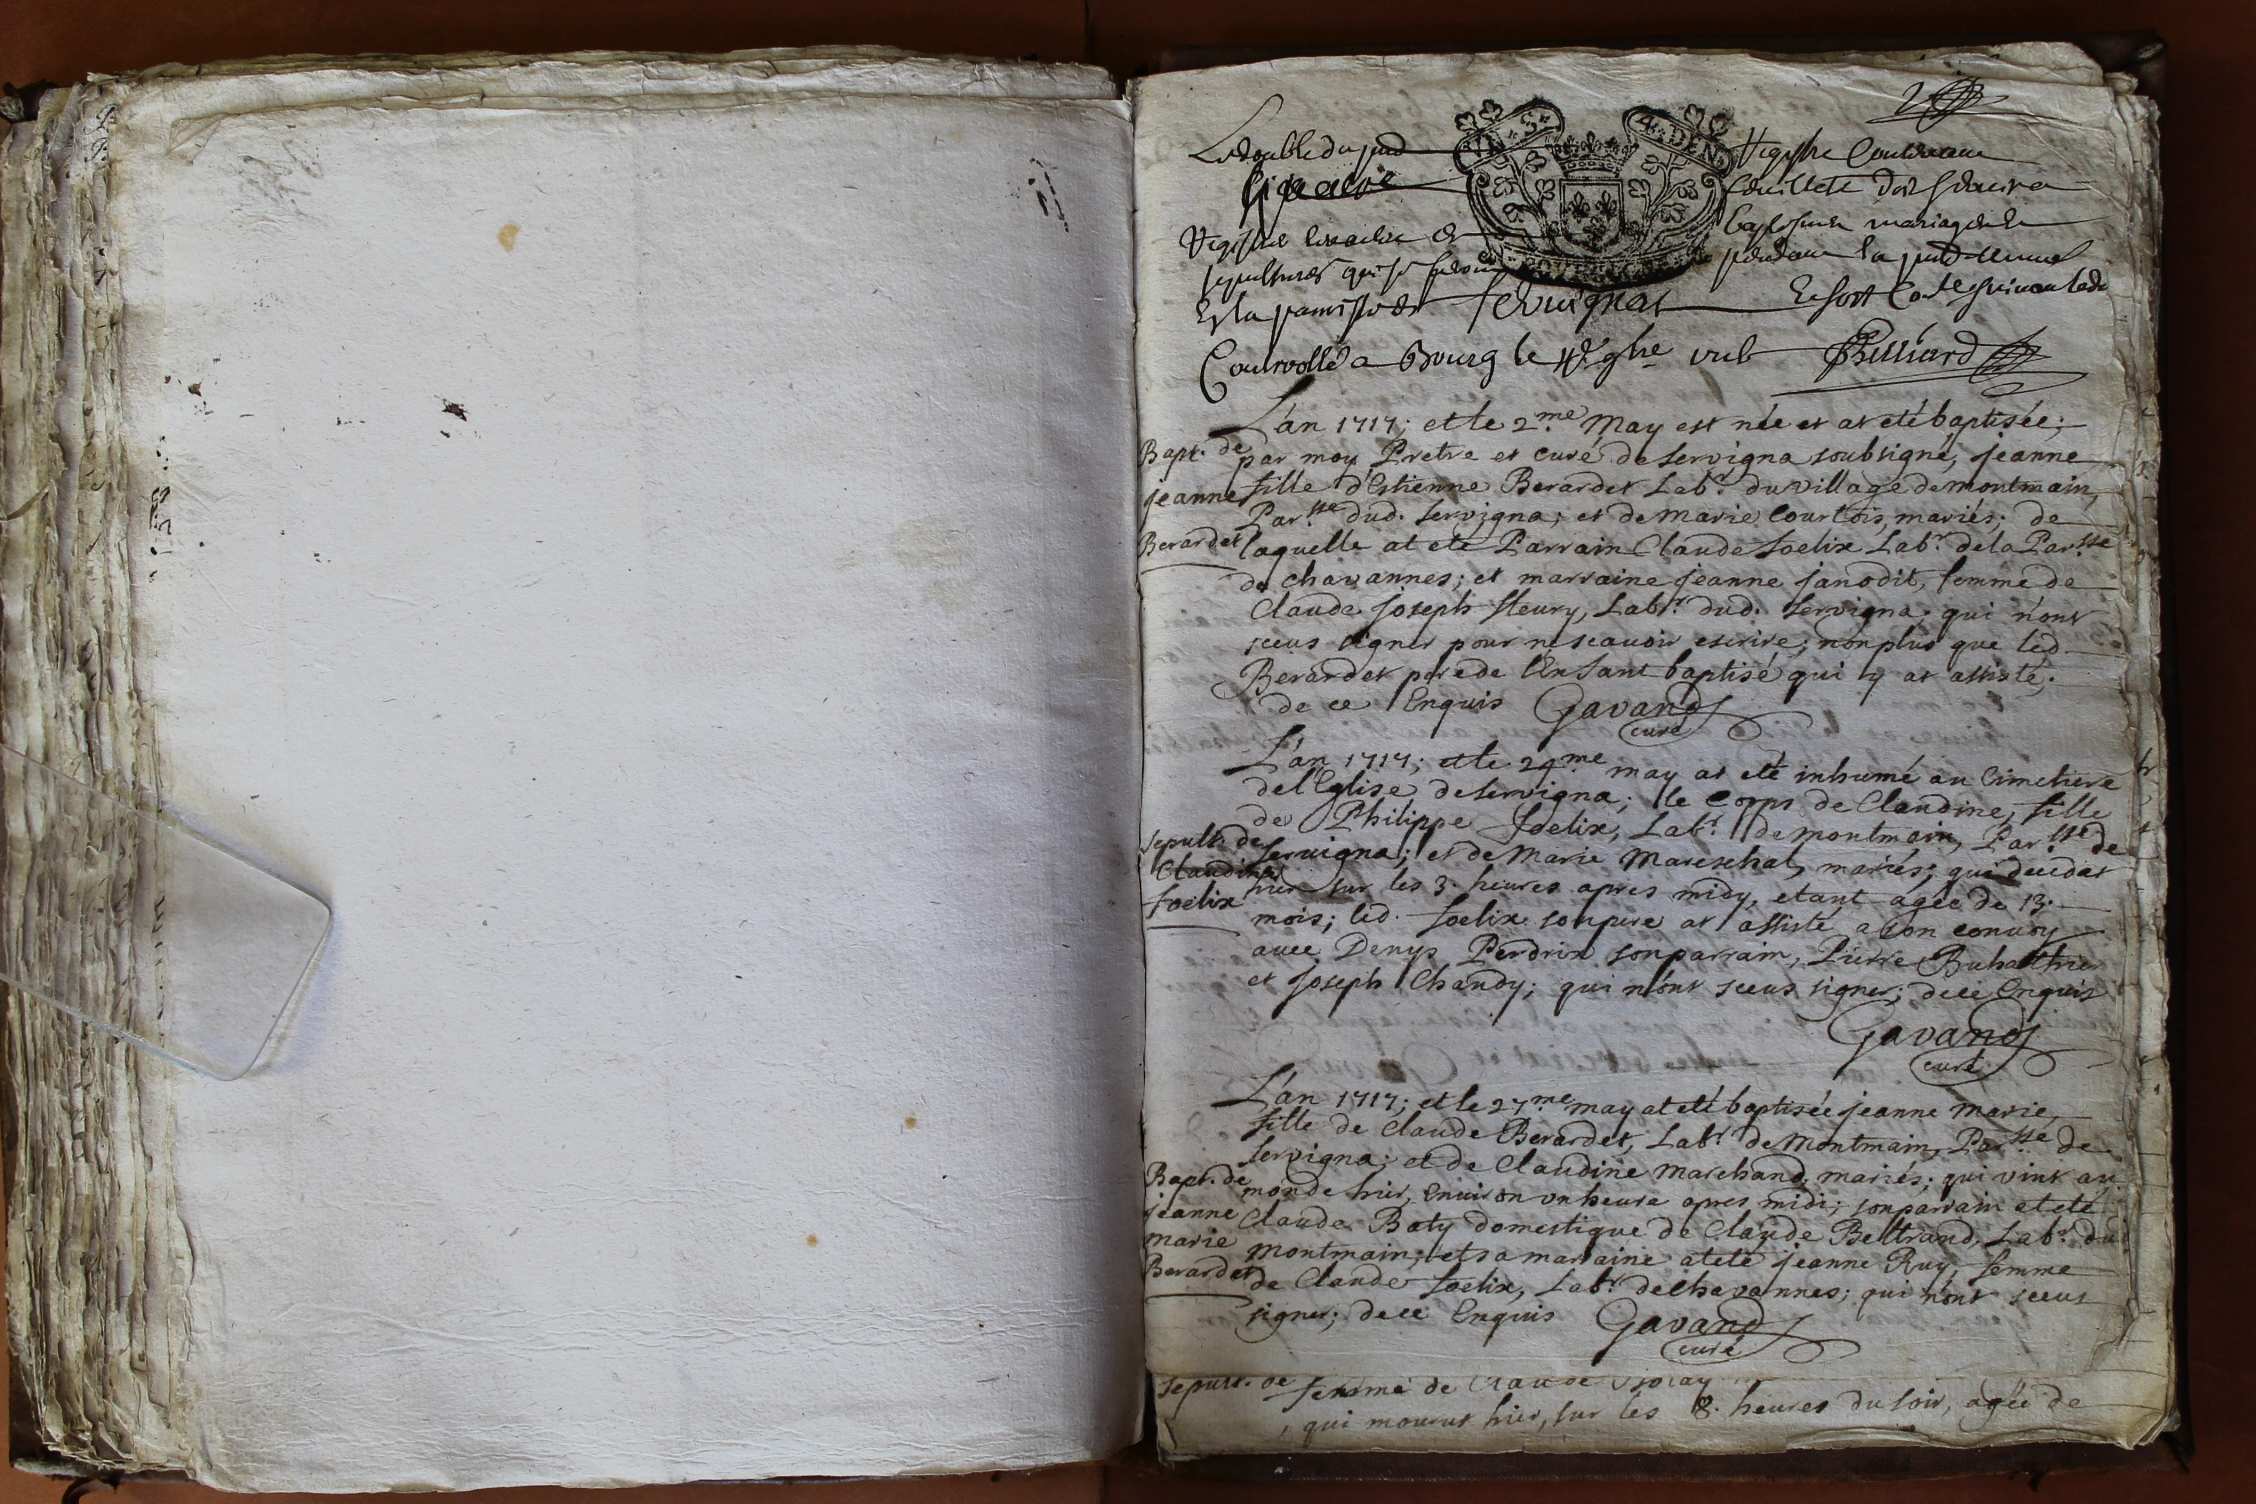 2
4. DEN
Le double du pnt Registre Contenant
feuillets
Registre
sepultures qui se feront pendant la
En la parroisse de Servignat
Controllé a Bourg le Billiard
L'an 1717; et le 2.me May est née et at eté baptisée;
Bapt. de
jeanne
Berardet
par moy Pretre et curé de Servigna soubsigné, jeanne
fille d'Estienne Berardet Lab.r du village de montmain,
Par.sse dud. Servigna; et de Marie Courtois, mariés; de
laquelle at eté Parrain Claude Foelix Lab.r de la Par.sse
de Chavannes; et marraine jeanne janodit, femme de
Claude Joseph fleury, Lab.r dud. Servigna; qui n'ont
sceus signer pour ne scavoir escrire; non plus que led.
Berardet pere de l'Enfant baptisé qui y at assisté;
de ce Enquis Gavand
curé
L'an 1717; et le 29.me may at eté inhumé au Cimetiere
de l'Eglise de Servigna; le Corps de Claudine, fille
de Philippe Foelix, Lab.r de montmain, Par.sse de
Sepult. de
Claudine
foelix
Servigna; et de Marie Mareschal, mariés; qui decedat
hier sur les 3. heures apres midy, etant agée de 13.
mois; led. foelix son pere at assisté a son convoy
avec Denys Perdrix son parrain, Pierre Buhatthier
et Joseph Chandy; qui n'ont sceus signer; de ce Enquis
Gavand
curé
L'an 1717; et le 27.me may at eté baptisée jeanne marie,
fille de Claude Berardet, Lab.r de Montmain, Par.sse de
Servigna; et de Claudine Marchand, mariés; qui vint au
Bapt. de
jeanne
marie
Berardet
monde hier, Environ vn heure apres midi; son parrain at eté
Claude Baty domestique de Claude Beltrand, Lab.r dud.
Montmain; et sa marraine at eté jeanne Ruy, femme
de Claude Foelix, Lab.r de Chavannes; qui n'ont sceus
signer; de ce Enquis Gavand
curé
Sepult. de
femme de Claude
qui mourut hier, sur les 8. heures du soir, agée de